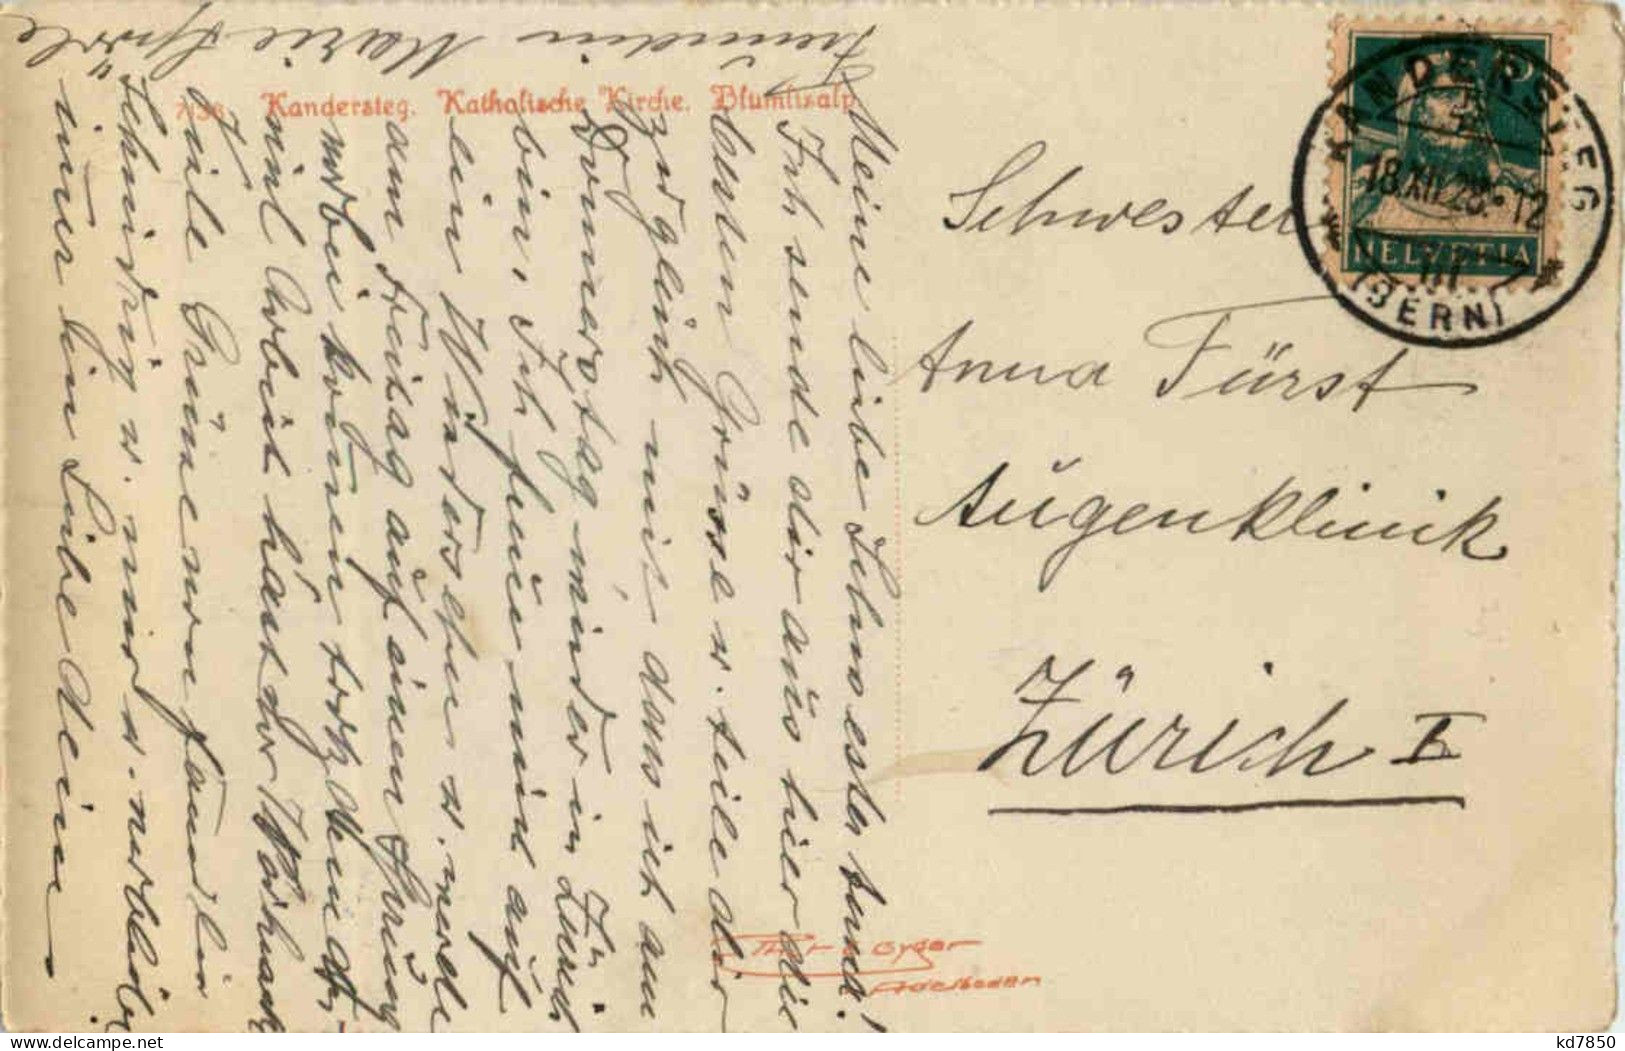 7136 Kandersteg. Katholische Kirche. Blümlisalp.
Meine liebe Schwester Anna!
Ich sende dir aus hier die
besten Grüsse u. teile dir
zugleich mit dass ich am
Donnerstag wieder in Zürich
bin. Ich freue mich auf
ein Wiedersehen u. werde
am Freitag auf einen Sprung
vorbei kommen trotzdem ich
viel Arbeit habe
Viele Grüsse von
u. mir u. verbleibe
immer hin Liebe deine
Freundin Marie
Schwester
Anna Fürst
Augenklinik
Zürich I
KANDERSTEG
18.XII.28.-12
III
(BERN)
HELVETIA
Thor E Gyger
Adelboden
kd7850